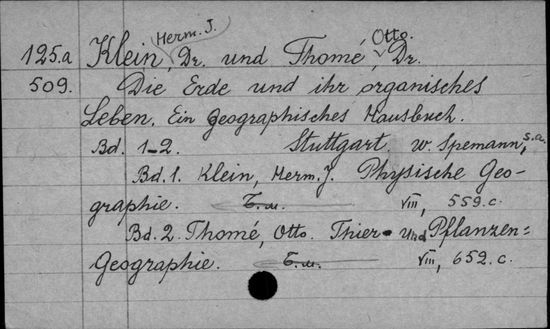 Herm. J. Otto.
125.a Klein, Dr. und Thomé, Dr.
509. Die Erde und ihr organisches
Leben. Ein geographisches Hausbuch.
Bd. 1-2. Stuttgart. W. Spemann, s.a.
Bd. 1. Klein, Herm. J. Physische Geo-
graphie. Б.м. VIII, 559.c.
Bd. 2. Thomé, Otto. Thier- und Pflanzen=
Geographie. Б.м. VIII, 652.c.